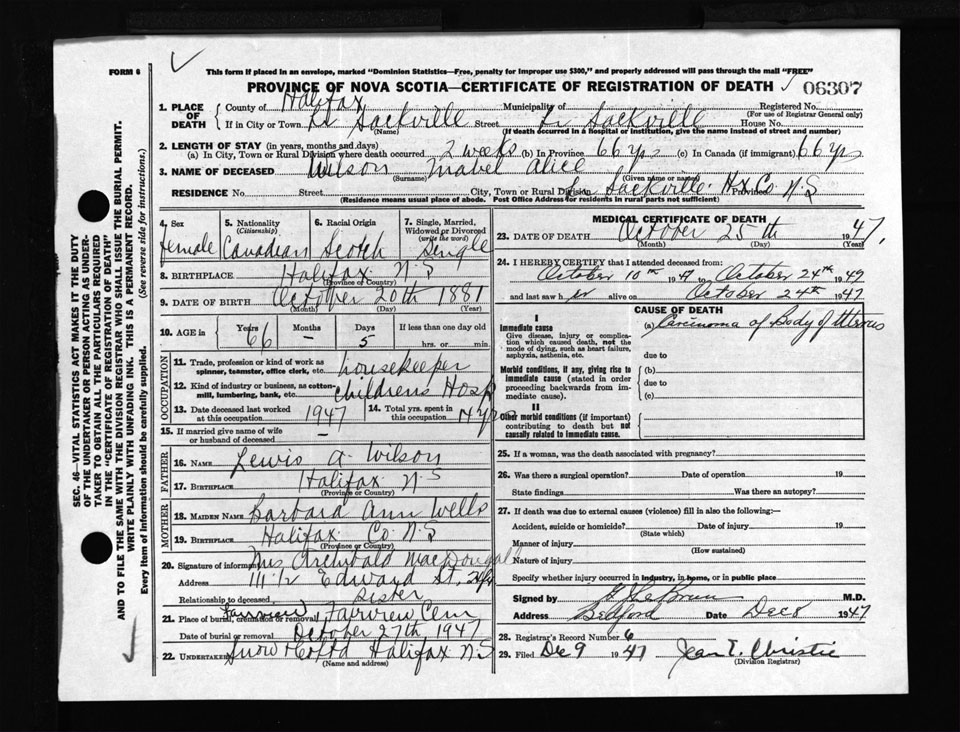 FORM 6
This form if placed in an envelope, marked "Dominion Statistics—Free, penalty for improper use $300," and properly addressed will pass through the mail "FREE"
PROVINCE OF NOVA SCOTIA—CERTIFICATE OF REGISTRATION OF DEATH
06307
1. PLACE OF DEATH
County of Halifax Municipality of Registered No.
(For use of Registrar General only)
If in City or Town Sackville Street Sackville House No.
(Name) (If death occurred in a hospital or institution, give the name instead of street and number)
2. LENGTH OF STAY (in years, months and days)
(a) In City, Town or Rural Division where death occurred 2 weeks (b) In Province 66 yrs (c) In Canada (if immigrant) 66 yrs
3. NAME OF DECEASED Wilson Mabel Alice
(Surname) (Given name or names)
RESIDENCE No. Street City, Town or Rural Division Sackville Hx Co Province N.S
(Residence means usual place of abode. Post Office Address for residents in rural parts not sufficient)
4. Sex
female
5. Nationality
(Citizenship)
Canadian
6. Racial Origin
Scotch
7. Single, Married, Widowed or Divorced
(write the word)
Single
8. BIRTHPLACE Halifax N.S
(Province or Country)
9. DATE OF BIRTH October 20th 1881
(Month) (Day) (Year)
10. AGE in
Years
66
Months
—
Days
5
If less than one day old
hrs. or min.
OCCUPATION
11. Trade, profession or kind of work as spinner, teamster, office clerk, etc. housekeeper
12. Kind of industry or business, as cotton-mill, lumbering, bank, etc. Childrens Hosp
13. Date deceased last worked at this occupation 1947
14. Total yrs. spent in this occupation 14 yrs
15. If married give name of wife or husband of deceased —
FATHER
16. NAME Lewis A. Wilson
17. BIRTHPLACE Halifax N.S
(Province or Country)
MOTHER
18. MAIDEN NAME Barbara Ann Wells
19. BIRTHPLACE Halifax Co N.S
(Province or Country)
20. Signature of informant Mrs Archibald MacDougall
Address 111 1/2 Edward St, Hfx
Relationship to deceased sister
21. Place of burial, cremation or removal Fairview, Fairview Cem
Date of burial or removal October 27th 1947
22. Undertaker Snow Halifax N.S
(Name and address)
MEDICAL CERTIFICATE OF DEATH
23. DATE OF DEATH October 25th 1947,
(Month) (Day) (Year)
24. I HEREBY CERTIFY that I attended deceased from:
October 10th 1947 to October 24th 1947
and last saw her alive on October 24th 1947
CAUSE OF DEATH
I
Immediate cause
Give disease, injury or complication which caused death, not the mode of dying, such as heart failure, asphyxia, asthenia, etc.
(a) Carcinoma of Body of Uterus
due to
Morbid conditions, if any, giving rise to immediate cause (stated in order proceeding backwards from immediate cause).
(b)
due to
(c)
II
Other morbid conditions (if important) contributing to death but not causally related to immediate cause.
25. If a woman, was the death associated with pregnancy?
26. Was there a surgical operation? Date of operation 19
State findings Was there an autopsy?
27. If death was due to external causes (violence) fill in also the following:—
Accident, suicide or homicide? Date of injury 19
(State which)
Manner of injury
(How sustained)
Nature of injury
Specify whether injury occurred in industry, in home, or in public place
Signed by M.D.
Address Bedford Date Dec 8 1947
28. Registrar's Record Number 6
29. Filed Dec 9 1947 Jean E. Christie
(Division Registrar)
SEC. 46—VITAL STATISTICS ACT MAKES IT THE DUTY
OF THE UNDERTAKER OR PERSON ACTING AS UNDER-
TAKER TO OBTAIN ALL THE PARTICULARS REQUIRED
IN THE "CERTIFICATE OF REGISTRATION OF DEATH"
AND TO FILE THE SAME WITH THE DIVISION REGISTRAR WHO SHALL ISSUE THE BURIAL PERMIT.
WRITE PLAINLY WITH UNFADING INK. THIS IS A PERMANENT RECORD.
Every item of information should be carefully supplied. (See reverse side for instructions.)